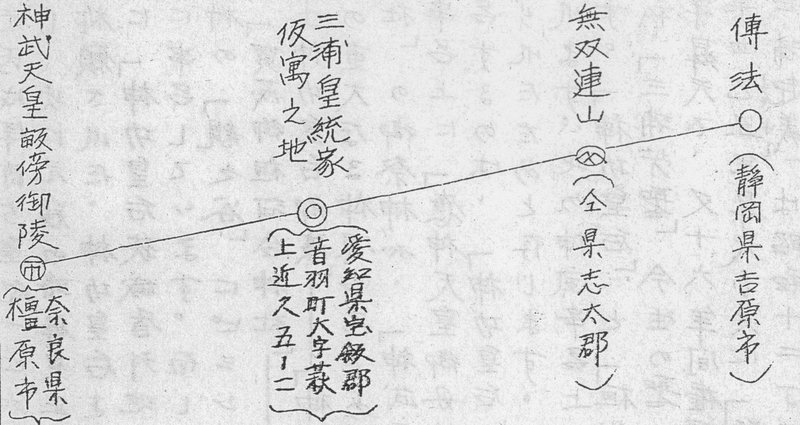 傳法
(静岡県吉原市)
無双連山
(仝県志太郡)
三浦皇統家
仮寓之地
愛知県宝飯郡
音羽町大字萩
上近久五ー二
神武天皇畝傍御陵
奈良県
橿原市